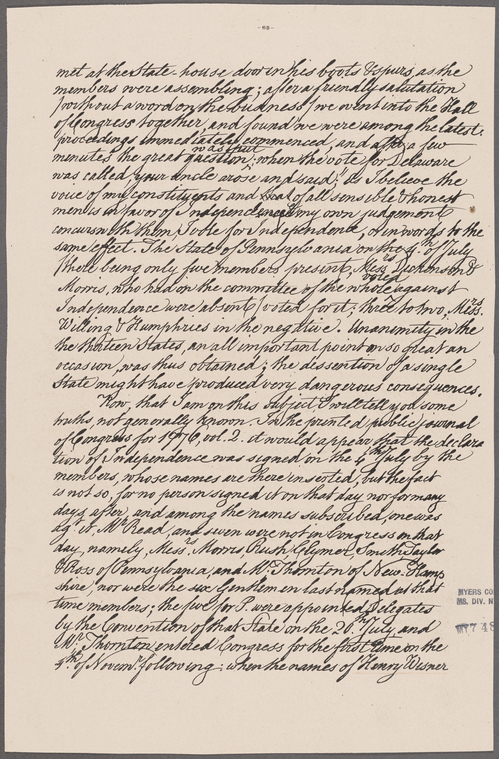 met at the State-house door in his boots & spurs, as the
members were assembling; after a friendly salutation
(without a word on the business) we went into the Hall
of Congress together, and found we were among the latest:
proceedings immediately commenced, and after a few
minutes the great question; when the vote for Delaware
was put
was called, your uncle arose and said; "As I believe the
voice of my constituents and of all sensible & honest
men is in favor of Independence my own judgement
concurs with them I vote for Independence, or in words to the
same effect. The State of Pennsylvania on the 4th of July
(there being only five members present, Messrs Dickinson &
Morris, who had on the committee of the whole voted against
Independence were absent) voted for it; three to two, Messrs.
Willing & Humphries in the negative. Unanemity in the
the thirteen States, an all important point on so great an
occasion, was thus obtained; the dissention of a single
State might have produced very dangerous consequences.
Now, that I am on this subject I will tell you some
truths, not generally known. In the printed public journal
of Congress for 1776, vol. 2. it would appear that the declara
tion of Independence was signed on the 4th July by the
members, whose names are there inserted, but the fact
is not so, for no person signed it on that day nor for many
days after, and among the names subscribed, one was
agt it, Mr Read, and seven were not in Congress on that
day, namely, Messrs Morris, Rush, Clymer, Smith Taylor
& Ross of Pennsylvania, and Mr. Thornton of New-Hamp
shire, nor were the six Gentlemen last named at that
time members; the five for P. were appointed Delegates
by the Convention of that State on the 20th July and
Mr Thornton entered Congress for the first time on the
4th of Novemr. following: when the names of Henry Wisner
MYERS CO
MS. DIV. N